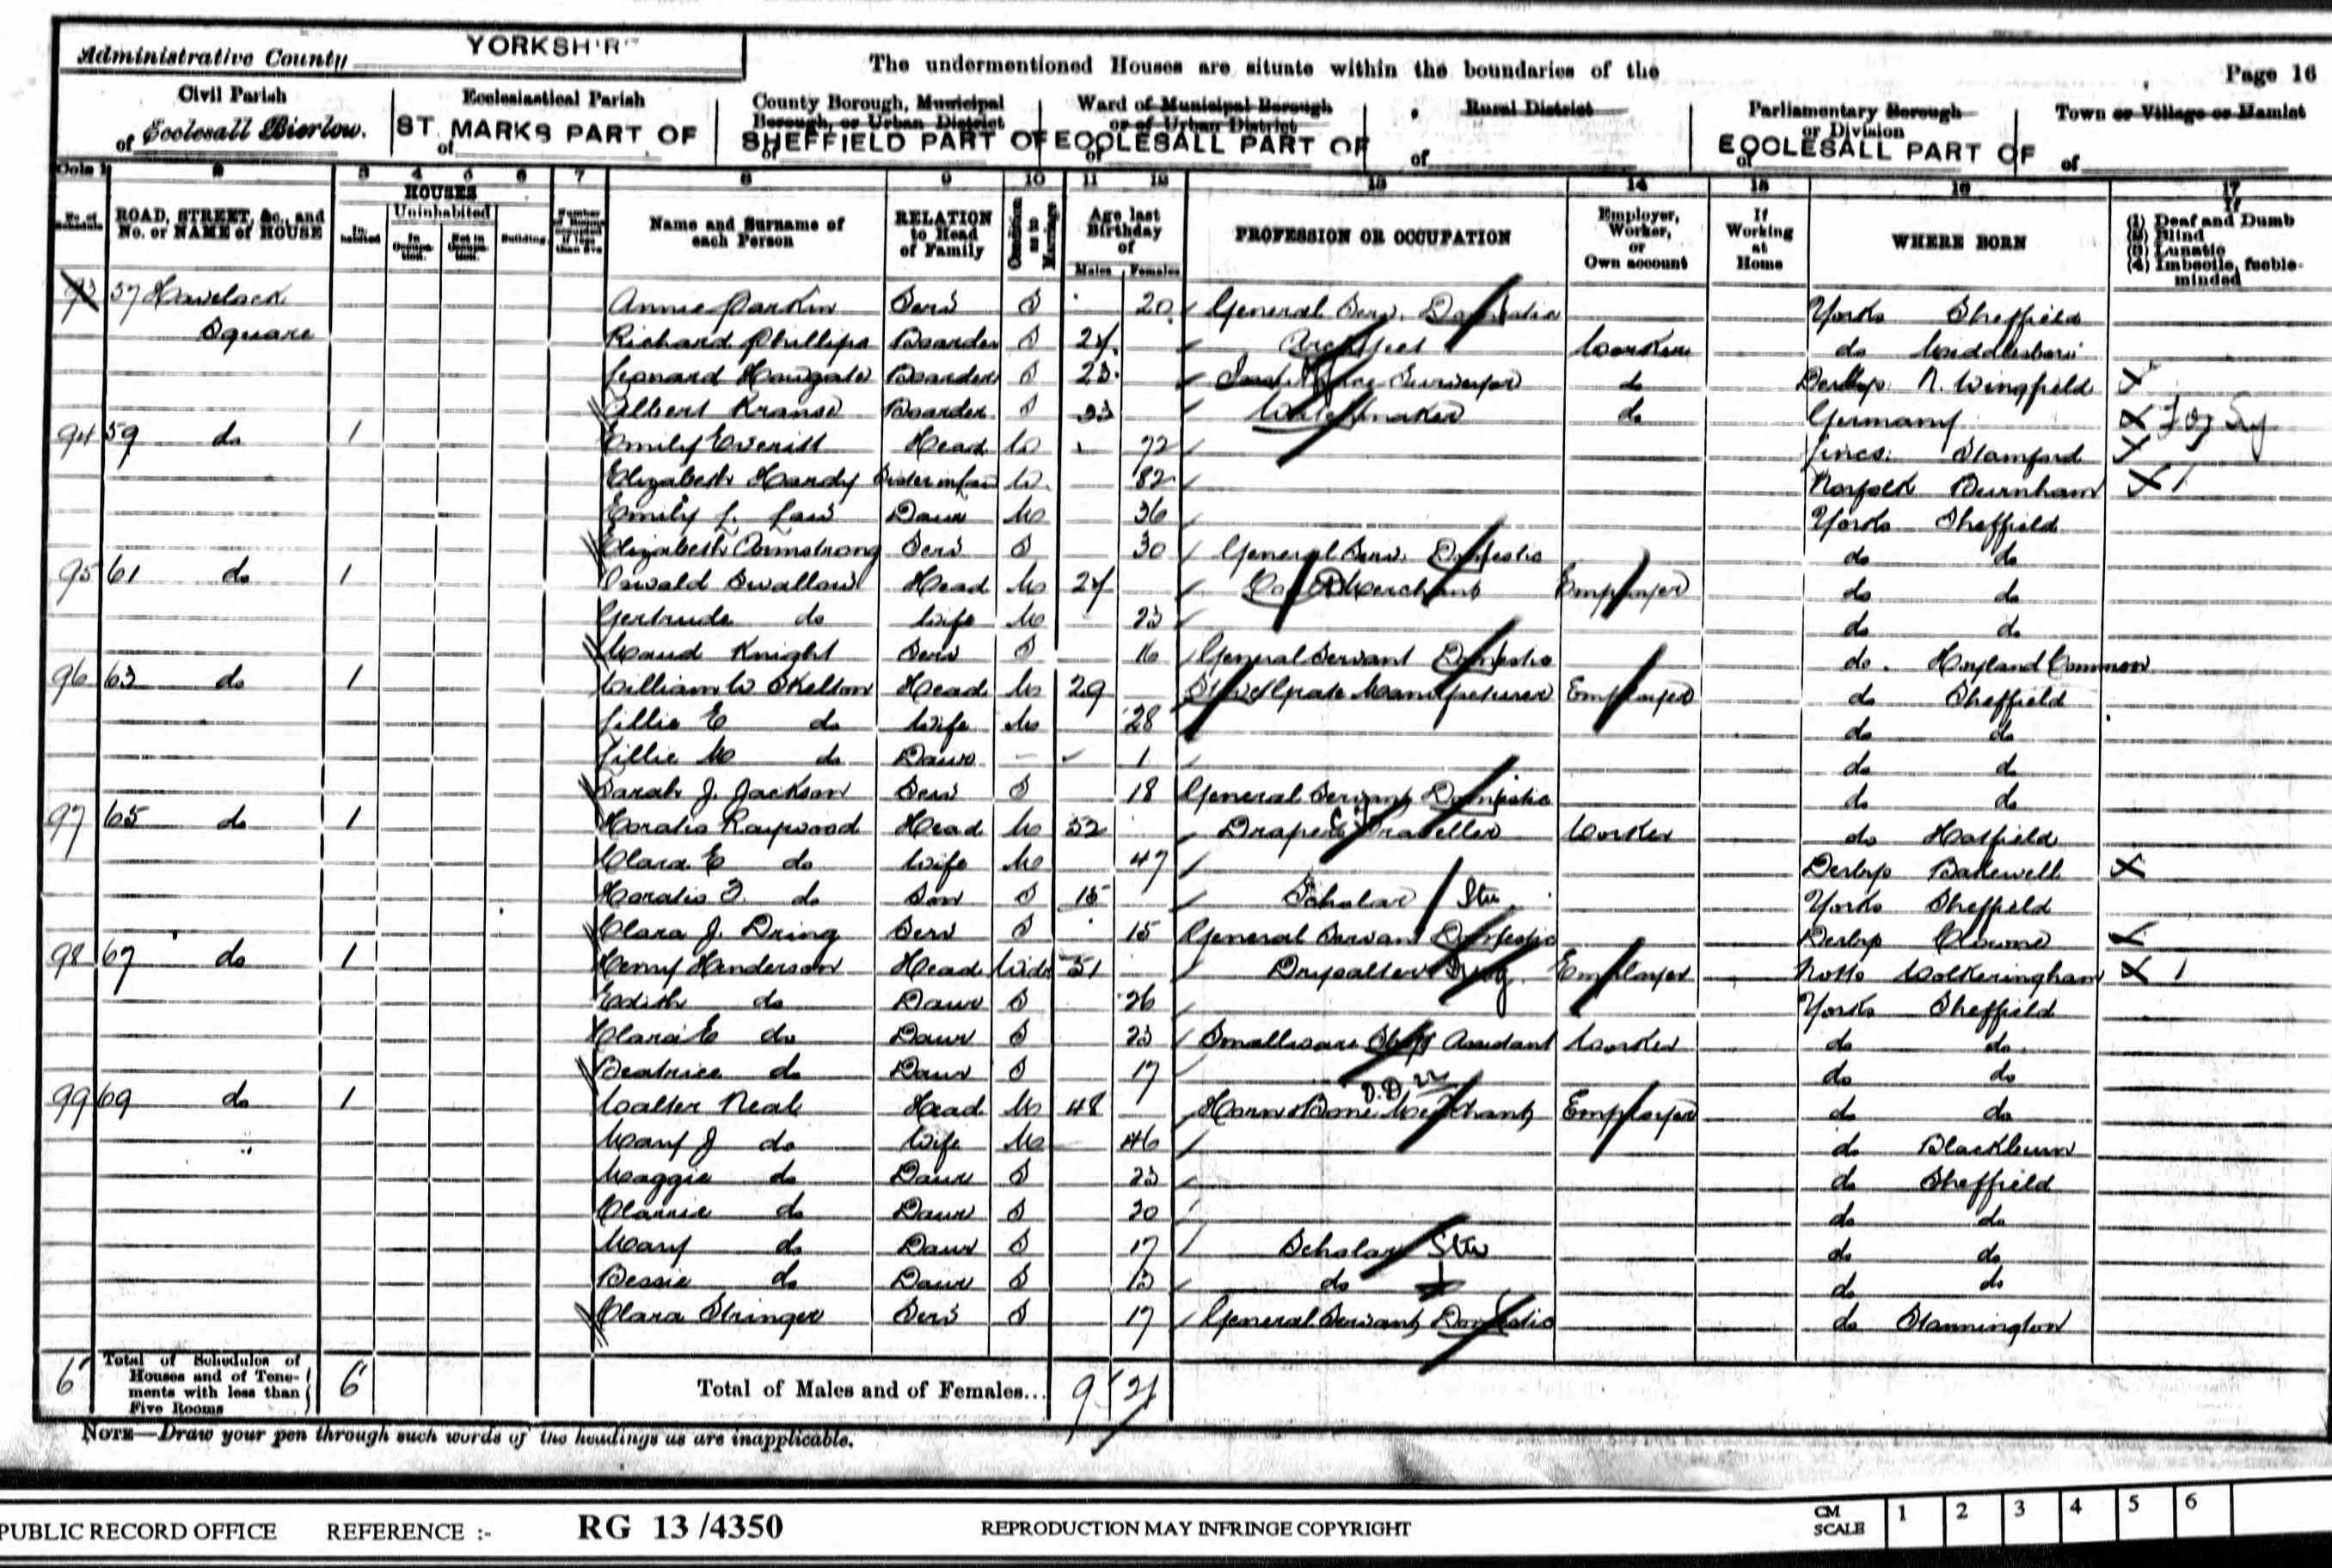 Administrative County YORKSHIR
The undermentioned Houses are situate within the boundaries of the
Page 16
Civil Parish of Ecclesall Bierlow.
Ecclesiastical Parish of ST. MARKS PART OF
County Borough, Municipal Borough, or Urban District of SHEFFIELD PART OF
Ward of Municipal Borough or of Urban District of ECCLESALL PART OF
Rural District of
Parliamentary Borough or Division of ECCLESALL PART OF
Town or Village or Hamlet of
Cols 1 2 3 4 5 6 7 8 9 10 11 12 13 14 15 16 17
No. of Schedule
ROAD, STREET, &c., and No. or NAME of HOUSE
HOUSES
Inhabited
Uninhabited
In Occupation.
Not in Occupation.
Building
Number of Rooms occupied if less than five
Name and Surname of each Person
RELATION to Head of Family
Condition as to Marriage
Age last Birthday of
Males Females
PROFESSION OR OCCUPATION
Employer, Worker, or Own account
If Working at Home
WHERE BORN
If (1) Deaf and Dumb (2) Blind (3) Lunatic (4) Imbecile, feeble-minded
93 57 Havelock Annie Parkin Serv S 20 General Serv. Domestic Yorks Sheffield
Square Richard Phillips Boarder S 24 Architect Worker do Middlesboro'
Leonard Howgate Boarder S 23 Surveyor do Derbys N. Wingfield
Albert Krause Boarder S 23 Watchmaker do Germany
94 59 do 1 Emily Everitt Head W 72 Lincs: Stamford
Elizabeth Hardy Sister in law W. 82 Norfolk Burnham 1
Emily L. Law Daur M 36 Yorks Sheffield
Elizabeth Armstrong Serv S 30 General Serv. Domestic do do
95 61 do 1 Oswald Swallow Head M 24 Coal Merchant Employer do do
Gertrude do Wife M 23 do do
Maud Knight Serv S 16 General Servant Domestic do. Hoyland Common
96 63 do 1 William W Skelton Head M 29 Manufacturer Employer do Sheffield
Lillie E do Wife M 28 do do
Lillie M do Daur — 1 do do
Sarah J. Jackson Serv S 18 General Servant Domestic do do
97 65 do 1 Horatio Raywood Head M 52 Drapers Traveller Worker do Hatfield
Clara E do Wife M 47 Derbys Bakewell
Horatio F. do Son S 15 Scholar Stu Yorks Sheffield
Clara J. Dring Serv S 15 General Servant Domestic Derbys Clowne
98 67 do 1 Henry Henderson Head Widr 51 Drysalter Drug Employer Notts Walkeringham 1
Edith do Daur S 26 Yorks Sheffield
Clara E do Daur S 23 Smallware Shop Assistant Worker do do
Beatrice do Daur S 17 do do
99 69 do 1 Walter Neal Head M 48 Horn & Bone Merchant Employer do do
Mary J do Wife M 46 do Blackburn
Maggie do Daur S 23 do Sheffield
Clarrie do Daur S 20 do do
Mary do Daur S 17 Scholar Stu do do
Bessie do Daur S 13 do do do
Clara Stringer Serv S 17 General Servant Domestic do Stannington
6 Total of Schedules of Houses and of Tenements with less than Five Rooms 6 Total of Males and of Females... 9 21
NOTE—Draw your pen through such words of the headings as are inapplicable.
PUBLIC RECORD OFFICE REFERENCE :- RG 13/4350 REPRODUCTION MAY INFRINGE COPYRIGHT CM SCALE 1 2 3 4 5 6